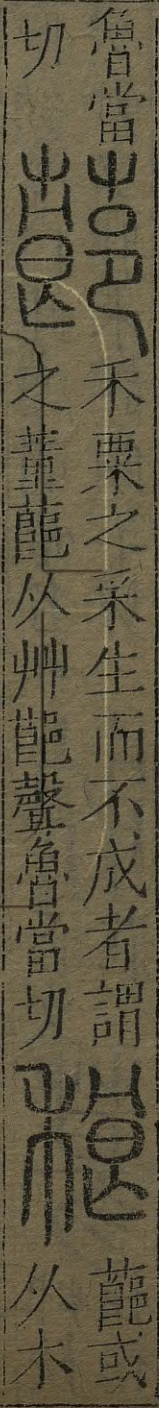 魯當
切
蓈
禾粟之采生而不成者謂
之蕫蓈从艸郎聲魯當切
稂
蓈或
从木